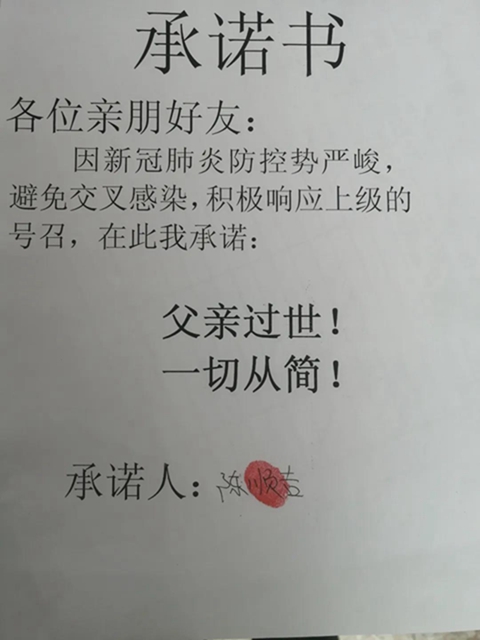 承诺书
各位亲朋好友：
因新冠肺炎防控势严峻，
避免交叉感染，积极响应上级的
号召，在此我承诺：
父亲过世！
一切从简！
承诺人：陈顺吉